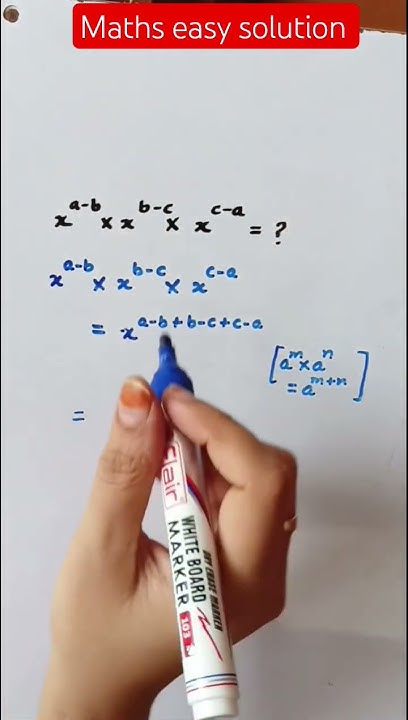 Maths easy solution
x^{a-b} × x^{b-c} × x^{c-a} = ?
x^{a-b} × x^{b-c} × x^{c-a}
= x^{a-b+b-c+c-a}
[a^m × a^n
= a^{m+n}]
=
clair
WHITE BOARD
MARKER
DRY ERASE MARKER
103